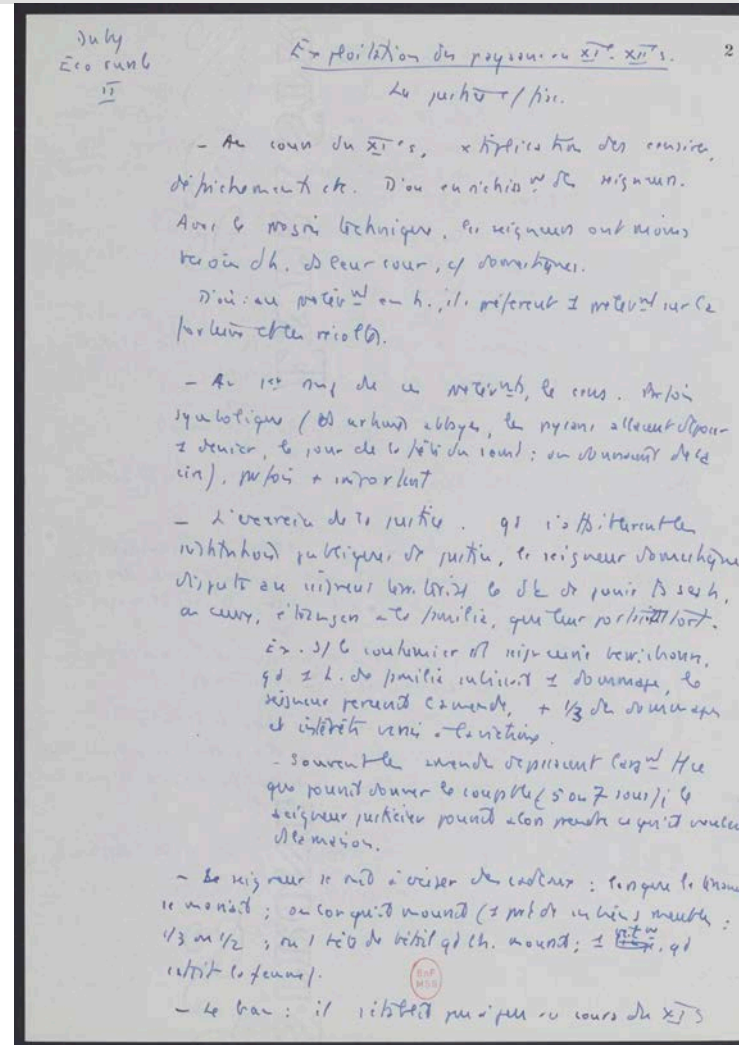 Duby
Eco rurale
II
2
Exploitation des paysans au XIe-XIIe s.
La justice et/ fisc.
- Au cours du XIe s, x tiplication des censives,
défrichements etc. D'où enrichisst des seigneurs.
Avec le progrès technique, les seigneurs ont moins
besoin d'h. ds leur cour, cf domestiques.
D'où : au prélèvt en h., ils préfèrent 1 prélèvt sur la
et les récoltes.
- Au 1er rang de ces prélèvts, le cens. Parfois
symbolique (ds abbayes, les paysans allaient déposer
1 denier, le jour de la fête du saint : on donnait de la
cire), parfois + important
- L'exercice de la justice. qd s'effritèrent les
institutions publiques de justice, le seigneur domestique
dispute au seigneur territorial le dt de punir ds ses h,
ou ceux, étrangers à la familia, qui leur portaient tort.
Ex. s/ le coutumier d'1 seigneurie berrichonne,
qd 1 h. de familia subissait 1 dommage, le
seigneur prenait l'amende, + 1/3 des dommages
et intérêts versés à la victime.
- Souvent les amendes dépassaient largt ce
que pouvait donner le coupable (5 ou 7 sous) ; le
seigneur justicier pouvait alors prendre ce qu'il voulait
ds la maison.
- Le seigneur se mit à exiger des cadeaux : lorsque le
se mariait ; ou lorsqu'il mourait (1 part de ses biens meubles :
1/3 ou 1/2 ; ou 1 tête de bétail qd l'h. mourait ; 1 qd
c'était la femme).
BnF
MSS
- Le ban : il s'établit peu à peu au cours du XIe s